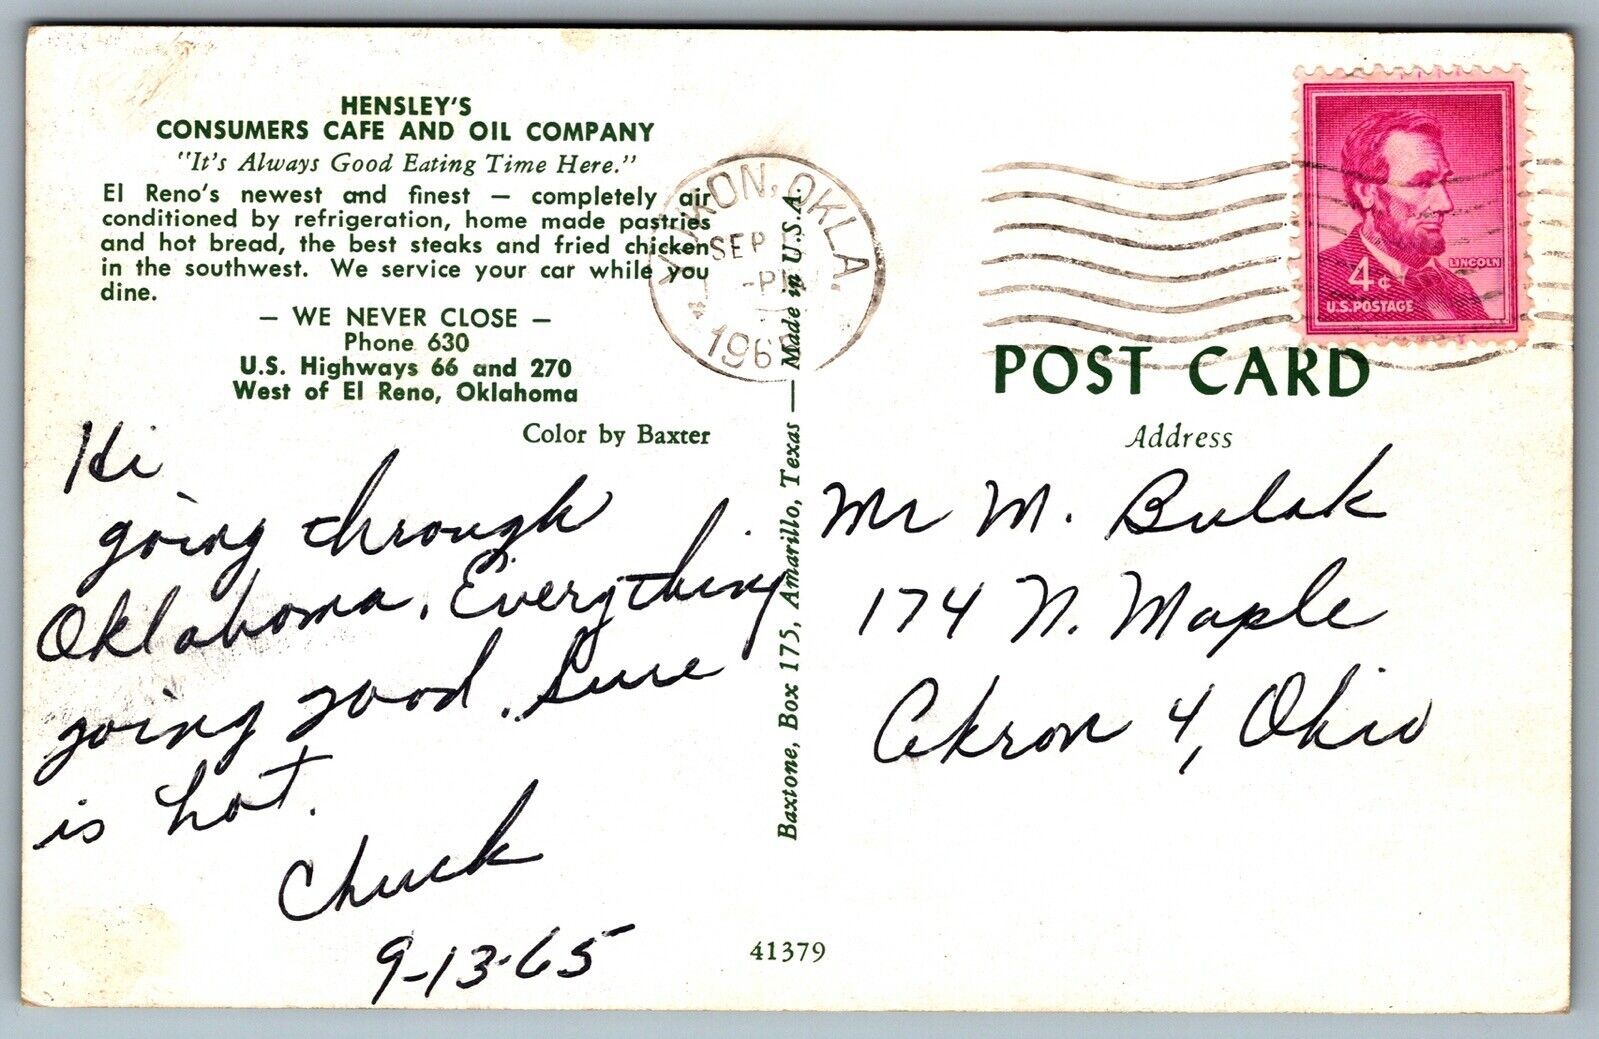 HENSLEY'S
CONSUMERS CAFE AND OIL COMPANY
"It's Always Good Eating Time Here."
El Reno's newest and finest — completely air
conditioned by refrigeration, home made pastries
and hot bread, the best steaks and fried chicken
in the southwest. We service your car while you
dine.
— WE NEVER CLOSE —
Phone 630
U.S. Highways 66 and 270
West of El Reno, Oklahoma
Color by Baxter
Hi
going through
Oklahoma. Everything
going good. Sure
is hot.
Chuck
9-13-65
Baxtone, Box 175, Amarillo, Texas — Made in U.S.A.
41379
YUKON, OKLA.
SEP
PM
LINCOLN
4¢
U.S. POSTAGE
POST CARD
Address
Mr M. Bulak
174 N. Maple
Akron 4, Ohio